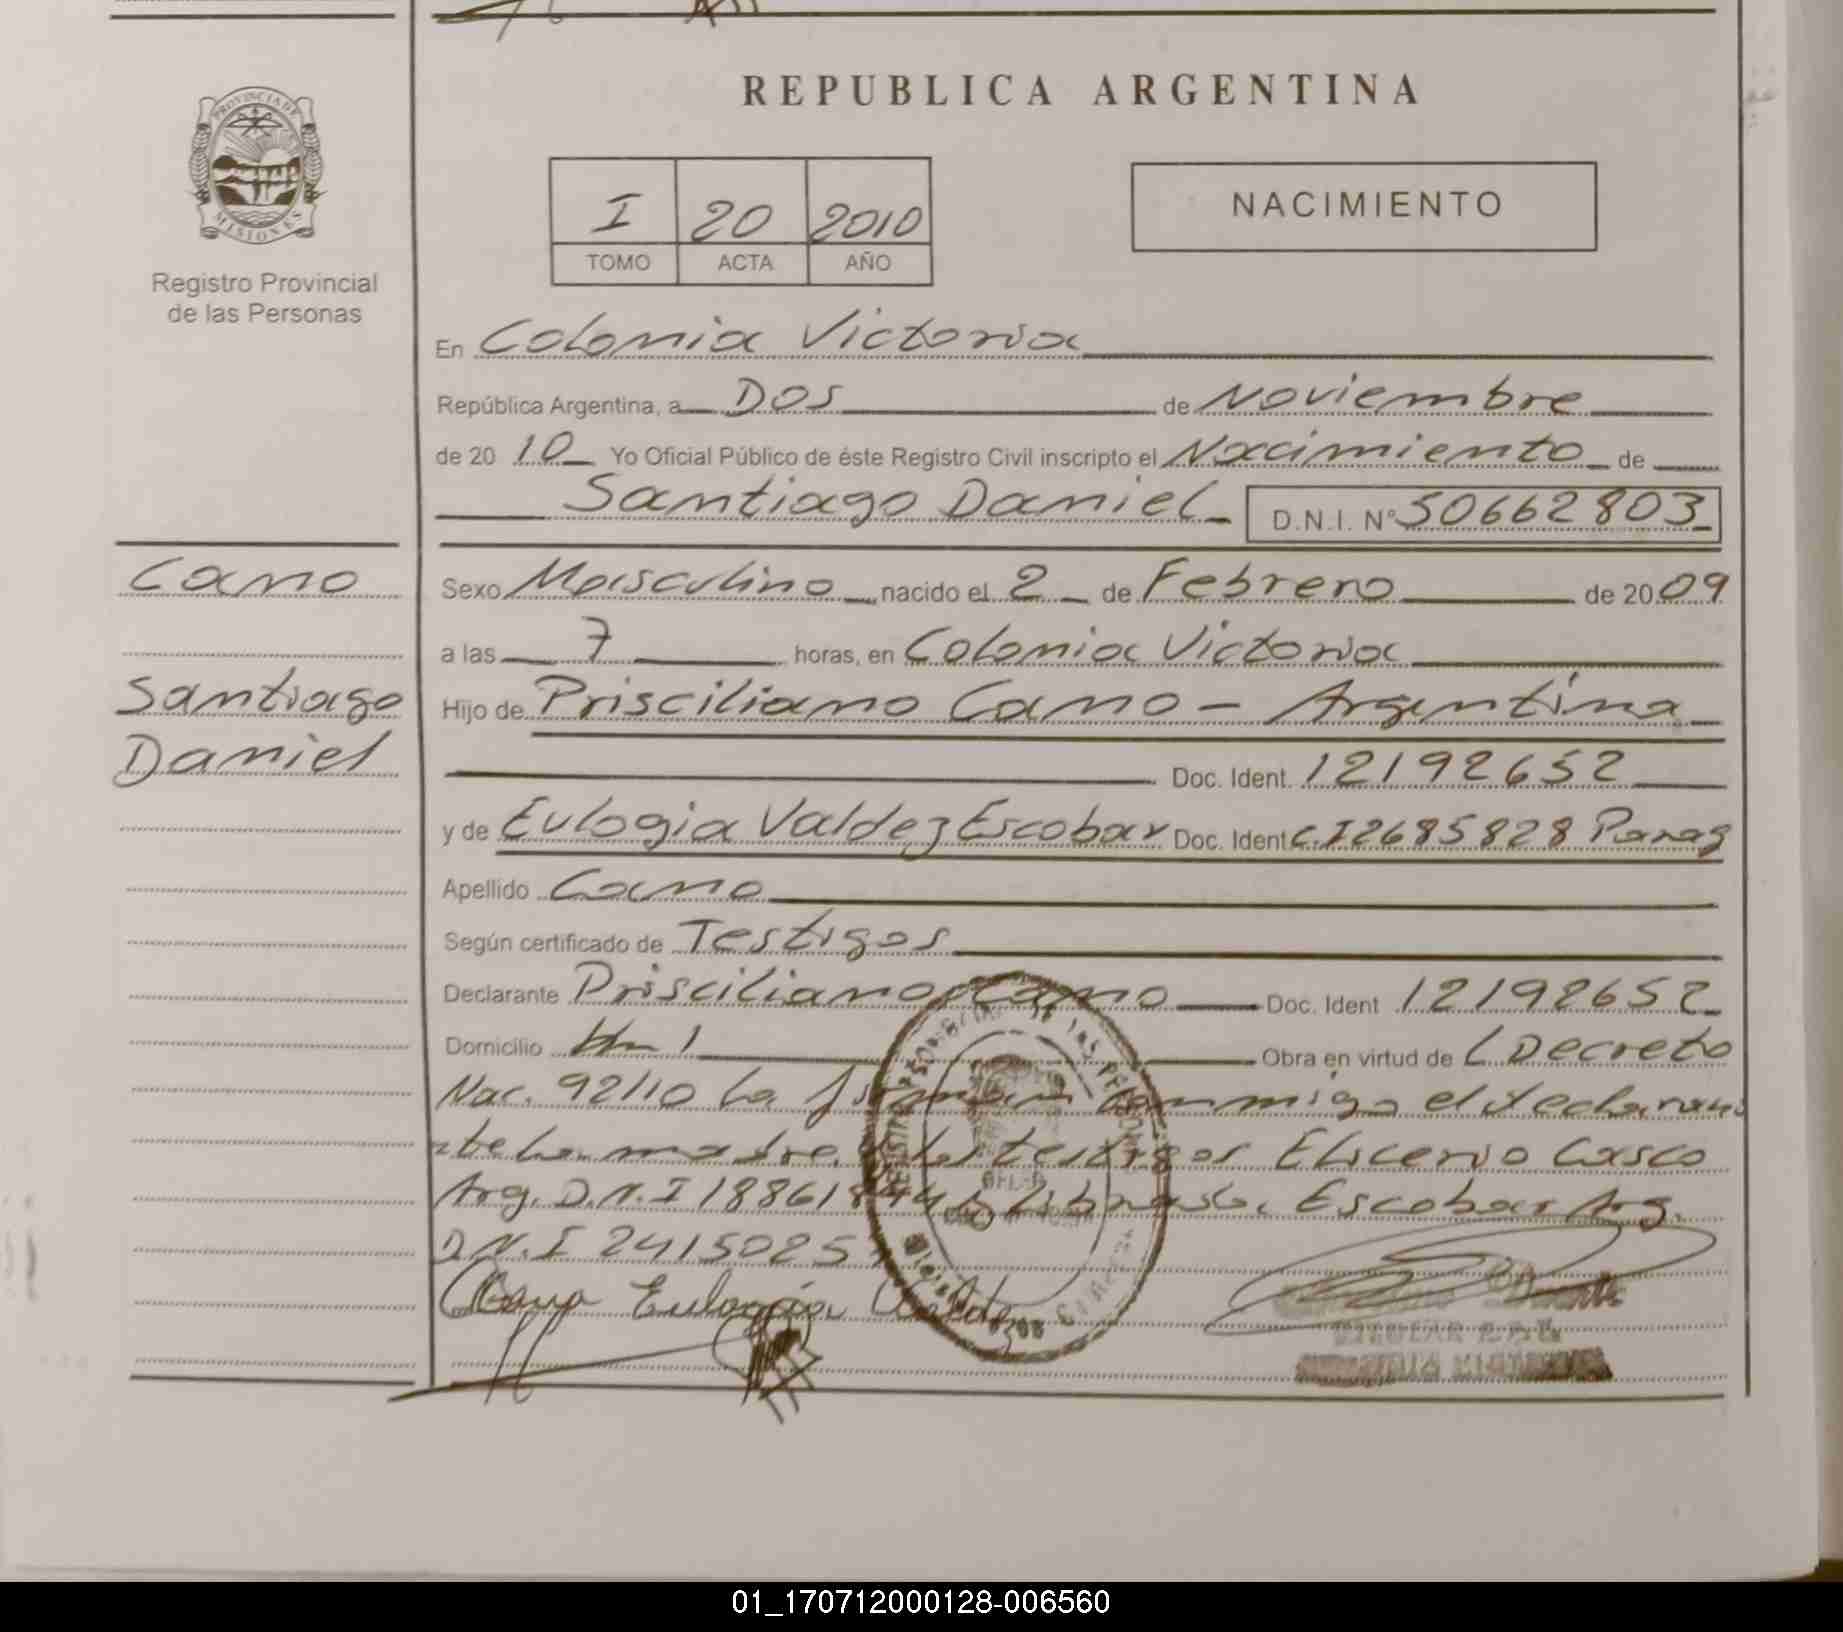 PROVINCIA DE
MISIONES
Registro Provincial
de las Personas
REPUBLICA ARGENTINA
I 20 2010
TOMO ACTA AÑO
NACIMIENTO
En Colonia Victoria
República Argentina, a Dos de Noviembre
de 20 10 Yo Oficial Público de éste Registro Civil inscripto el Nacimiento de
Santiago Daniel D.N.I. N° 50662803
Cano
Santiago
Daniel
Sexo Masculino nacido el 2 de Febrero de 2009
a las 7 horas, en Colonia Victoria
Hijo de Prisciliano Cano - Argentina
Doc. Ident. 12192652
y de Eulogia Valdez Escobar Doc. Ident C.I 2685828 Parag
Apellido Cano
Según certificado de Testigos
Declarante Prisciliano Cano Doc. Ident 12192652
Domicilio Km 1 Obra en virtud de L Decreto
Nac. 92/10 La firman conmigo el declaran
te La madre testigos Casco
Arg. D.N.I Escobar Arg.
D.N.I 2415025
Cano Eulogia
01_170712000128-006560